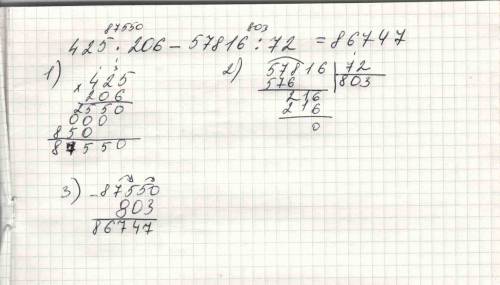 87550 803
425 · 206 - 57816 : 72 = 86747
1)
× 425
206
2550
000
850
87550
2)
57816 | 72
576 803
216
216
0
3)
- 87550
803
86747